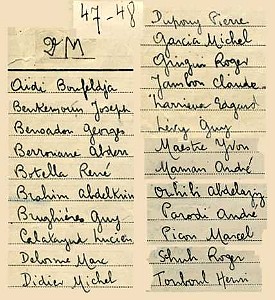 47-48
2M
Aidi Benfeldja
Benkemoun Joseph
Benoadon Georges
Berrouane Abden
Botella René
Brahim Abdelkrim
Brughières Guy
Calatayud Lucien
Delorme Marc
Didier Michel
Dupouy Pierre
Garcia Michel
Roger
Jambon Claude
Larrieu Edgard
Lévy Guy
Maestre Yvon
Maman André
Abdelaziz
Parodi André
Picon Marcel
Schuh Roger
Tomboul Henri